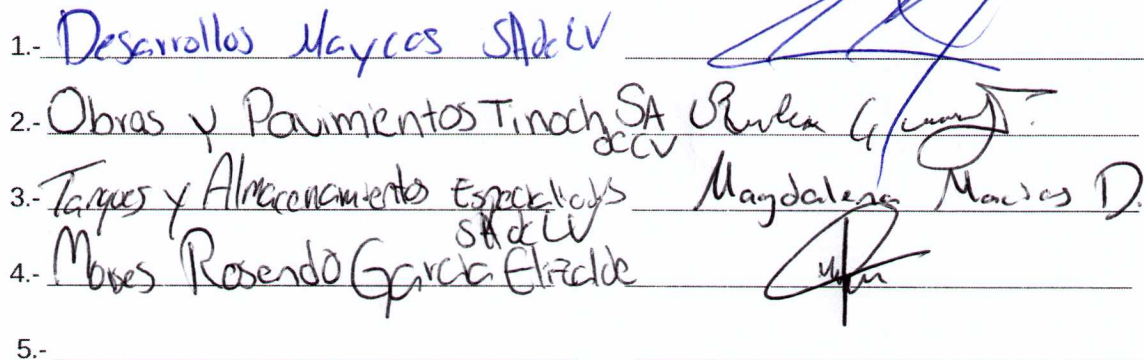 1.- Desarrollos Maycos SA de CV
2.- Obras y Pavimentos Tinoch SA
de CV
3.- Tanques y Almacenamientos Especialidads Magdalena Macias D.
SA de CV
4.- Moises Rosendo Garcia Elizalde
5.-